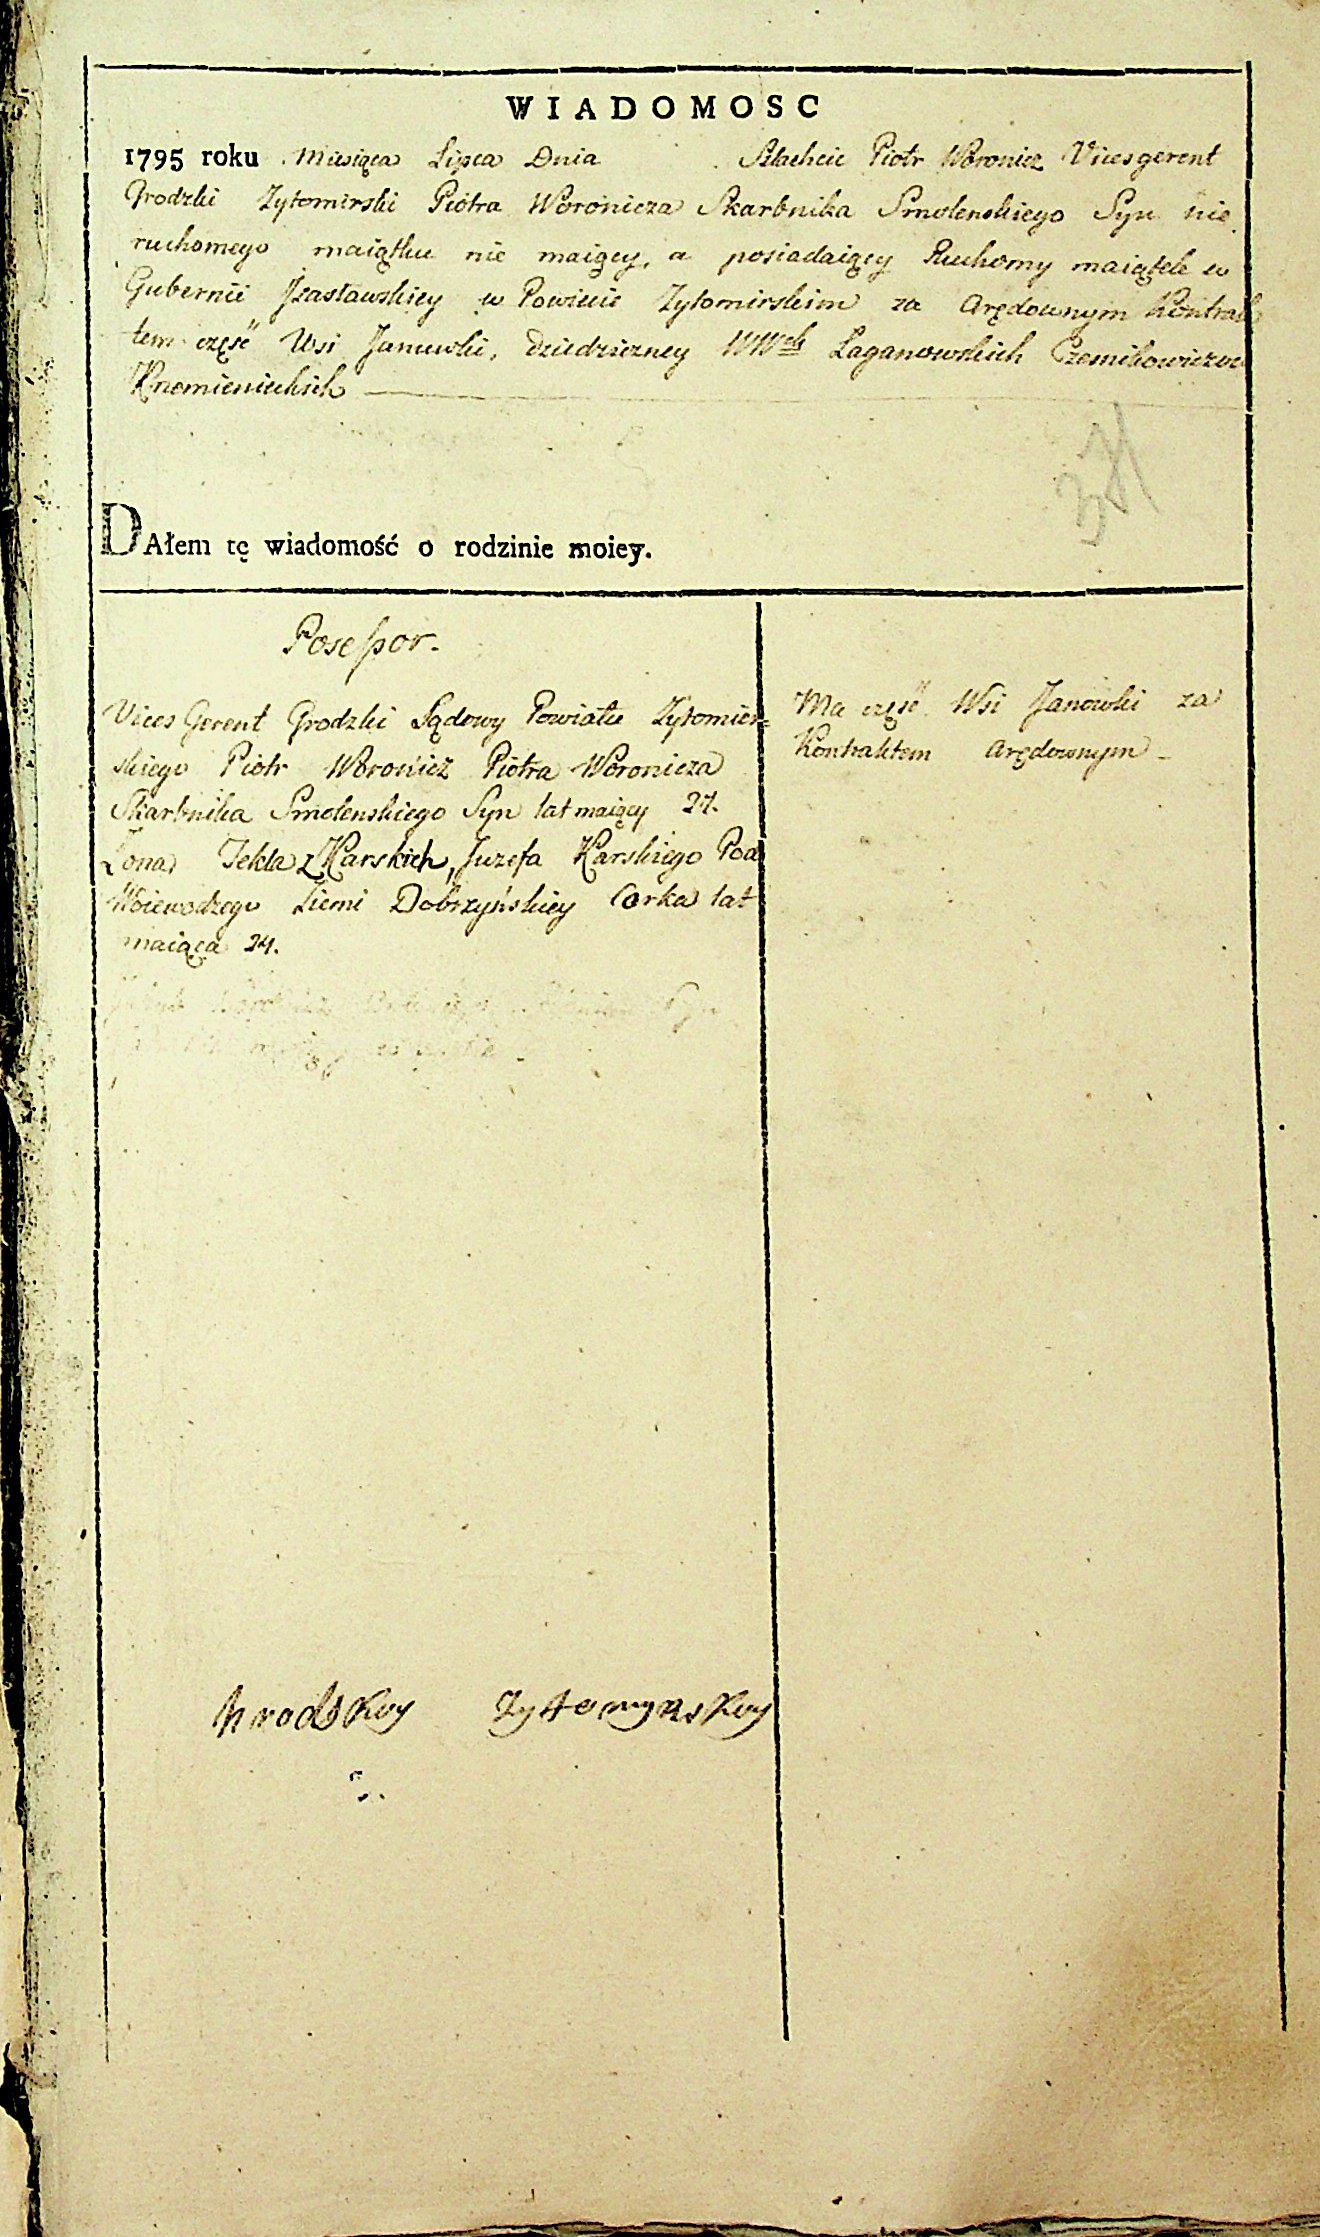 WIADOMOSC
1795 roku Miesiąca Lipca Dnia Szlachcic Piotr Woronicz Vicesgerent
Grodzki Zytomirski Piotra Woronicza Skarbnika Smolenskiego Syn nie
ruchomego maiątku nie maiący, a posiadaiący Ruchomy maiątek w
Gubernii Izasławskiey w Powiecie Zytomirskim za Arędownym Kontrak
tem część Wsi Janowki, dziedziczney WWch Łaganowskich
DAłem tę wiadomość o rodzinie moiey.
Posessor.
Vices Gerent Grodzki Sądowy Powiatu Zytomier=
skiego Piotr Woronicz Piotra Woronicza
Skarbnika Smolenskiego Syn lat maiący 27.
Zona Tekla z Karskich, Juzefa Karskiego Pod
Woiewodzego Ziemi Dobrzyńskiey Corka lat
maiąca 24.
Ma część Wsi Janowki za
Kontraktem Arędownym -
hrodskuy Zytomyrskuy